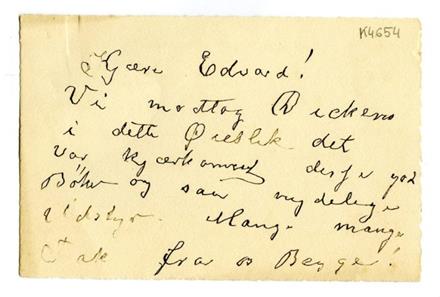 K4654
Kjære Edvard!
Vi mottog Dickens
i dette Øieblik det
var kjærkomment disse god
Bøker og saa nydelige
Udstyr. Mange mange
Tak fra os Begge!